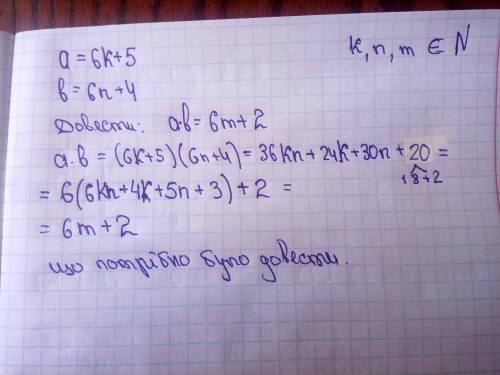 a = 6k+5
k, n, m ∈ N
b = 6n+4
Довести: a·b = 6m+2
a·b = (6k+5)(6n+4) = 36kn + 24k + 30n + 20 =
18+2
= 6(6kn+4k+5n+3)+2 =
= 6m+2
що потрібно було довести.